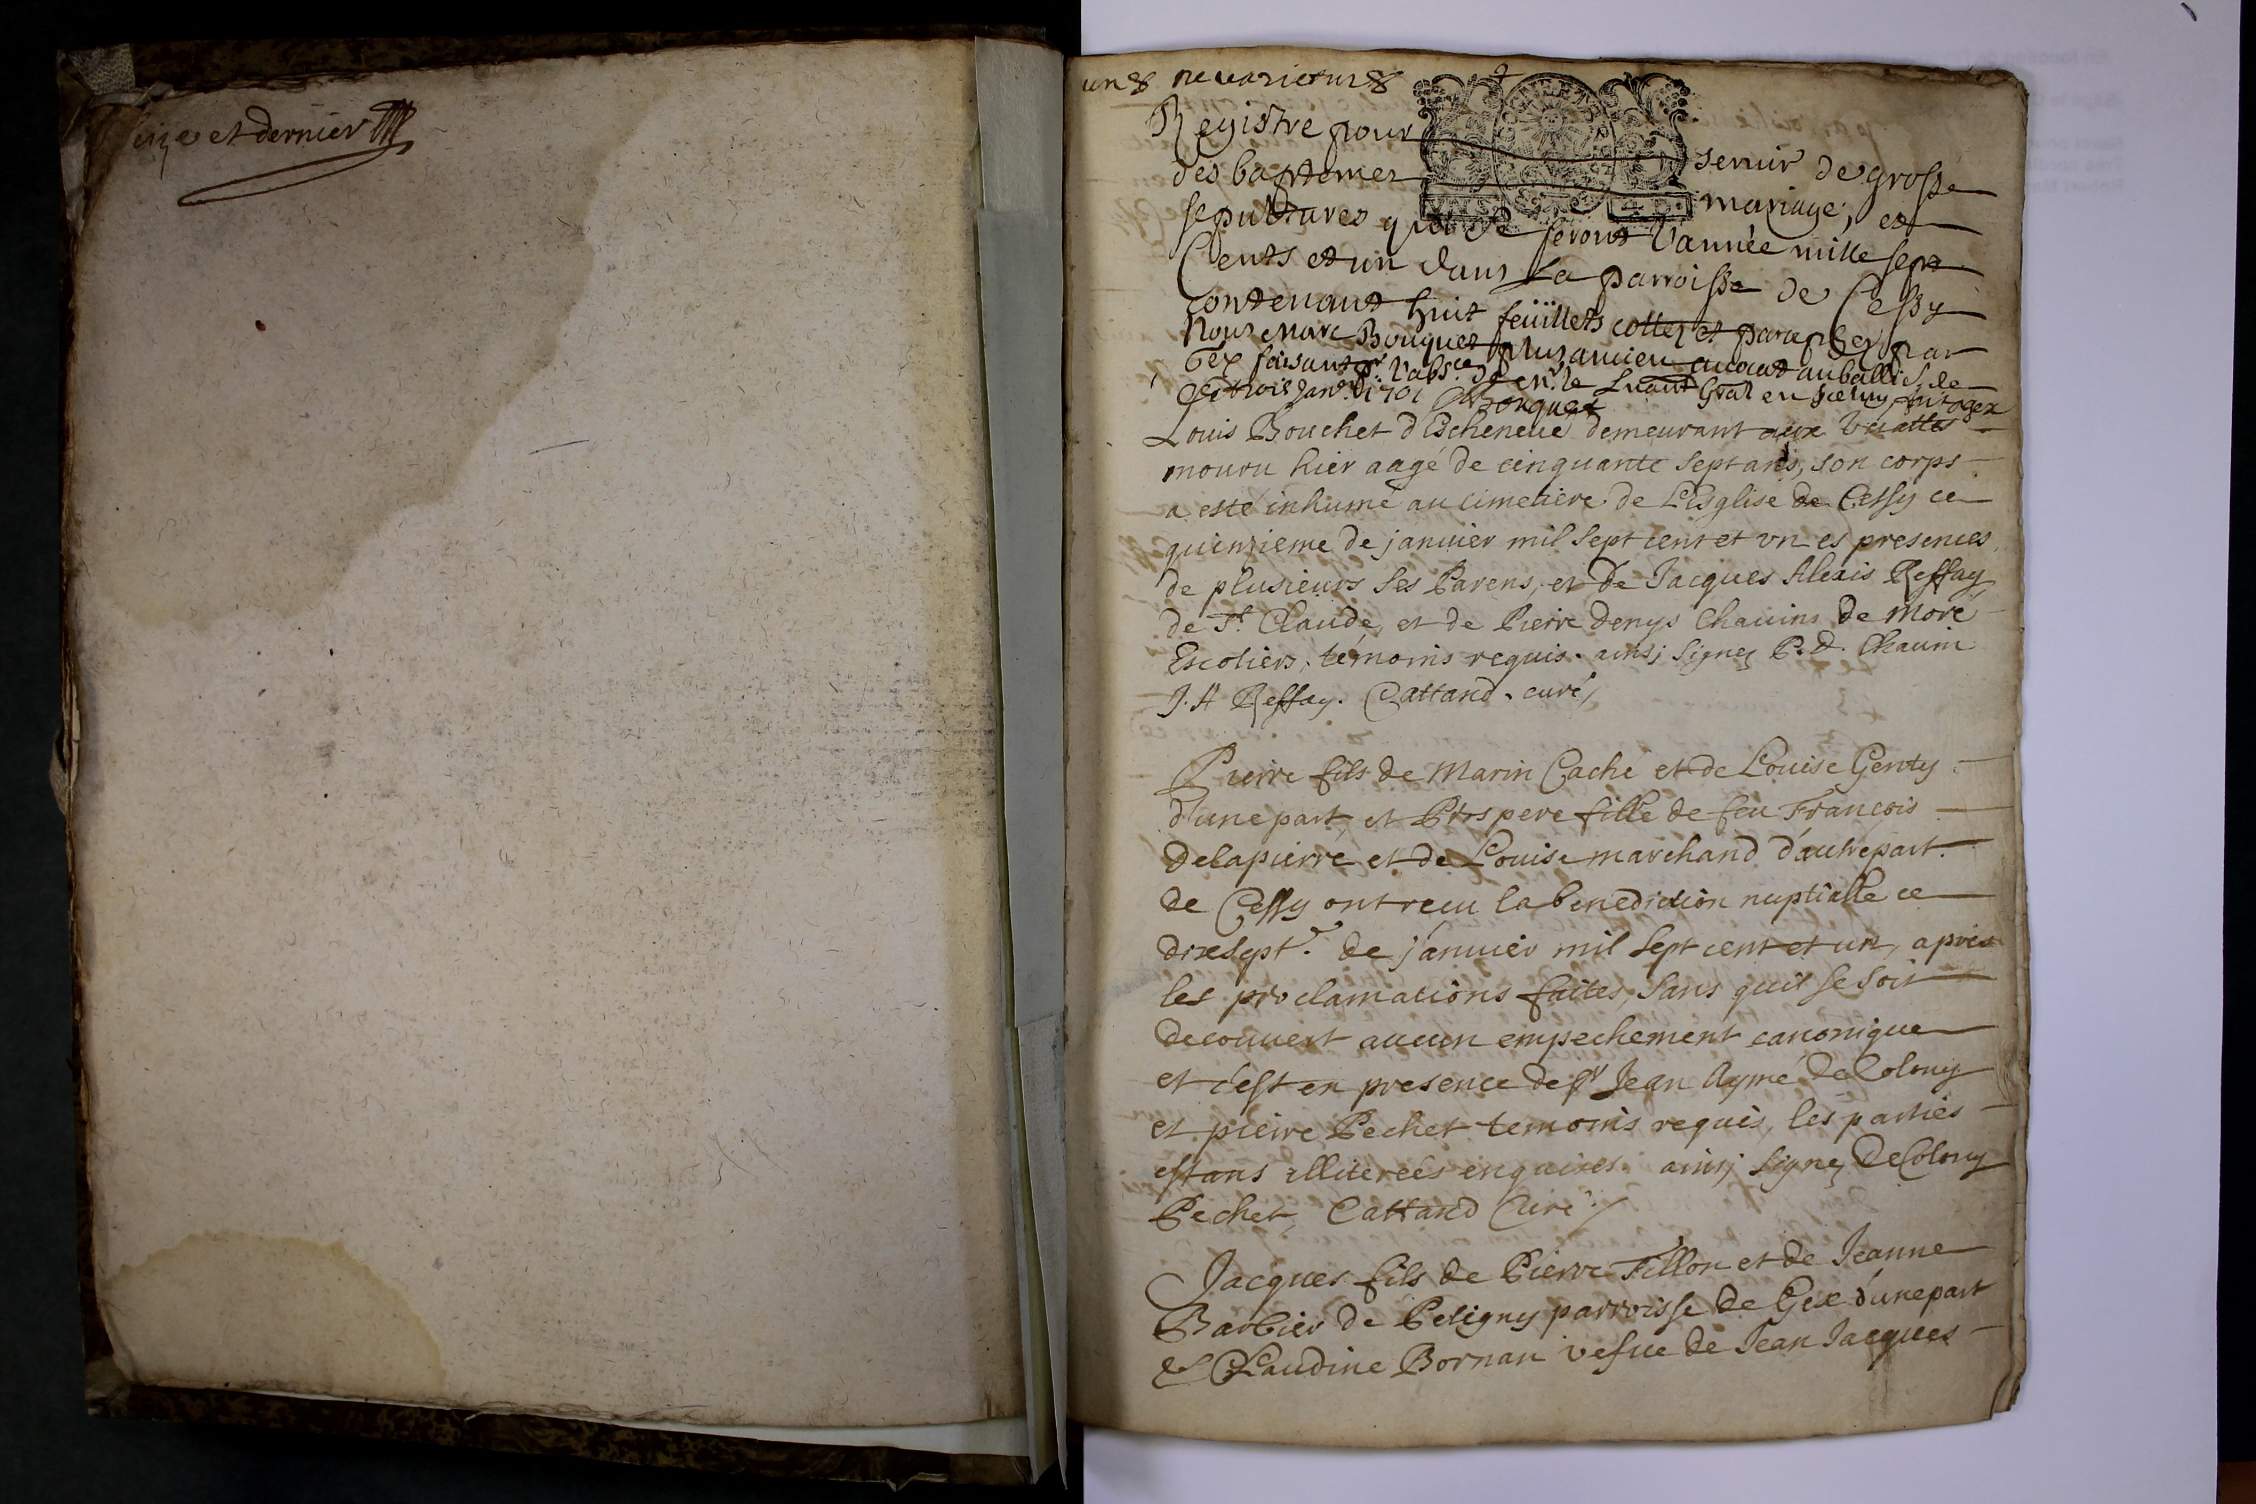 seize et dernier
une ne varietur
Registre pour servir de grosse
des baptemes mariage, et
sepultures qui se feront l'année mille sept
Cents et un dans la parroisse de Cessy
contenant huit feüillets cottez et paraphez par
Nous Marc Bouquet plus ancien avocat au balli de
Gex faisant pr l'absce de Mr le Lieutnant Gral
ce trois Janr 1701 Bouquet
Louis Bouchet d'Escheneve demeurant aux
mouru hier aagé de cinquante sept ans, son corps
a esté inhumé au cimetiere de L'Esglise de Cessy ce
quienzieme de januier mil sept cent et vn es presences
de plusieurs ses Parens, et de Jacques Alexis Reffay
de St Claude, et de Pierre denys Chauins de Moré
Escoliers, témoins requis. ainsj signez P. D. Chauin
J. A Reffay. Cattand. curé
Pierre fils de Marin Caché et de Louise Genty
d'une part, et Prospere fille de feu François
Delapierre et de Louise marchand d'autre part
de Cessy ont reçu la benediction nuptialle ce
dixsept. de januier mil sept cent et un, apres
les proclamations faites, sans quil se soit
decouuert aucun empechement canonique
et c'est en presence de sr Jean Aymé DeColony
et pierre Pechet temoins requis, les parties
estans illiterées enquises. ainsj signez DeColony
Pechet, Cattand Curé
Jacques fils de Pierre Fillon et de Jeanne
Barbier de Peligny parroisse de Gex d'une part
& Claudine Bornan vefue de Jean Jacques